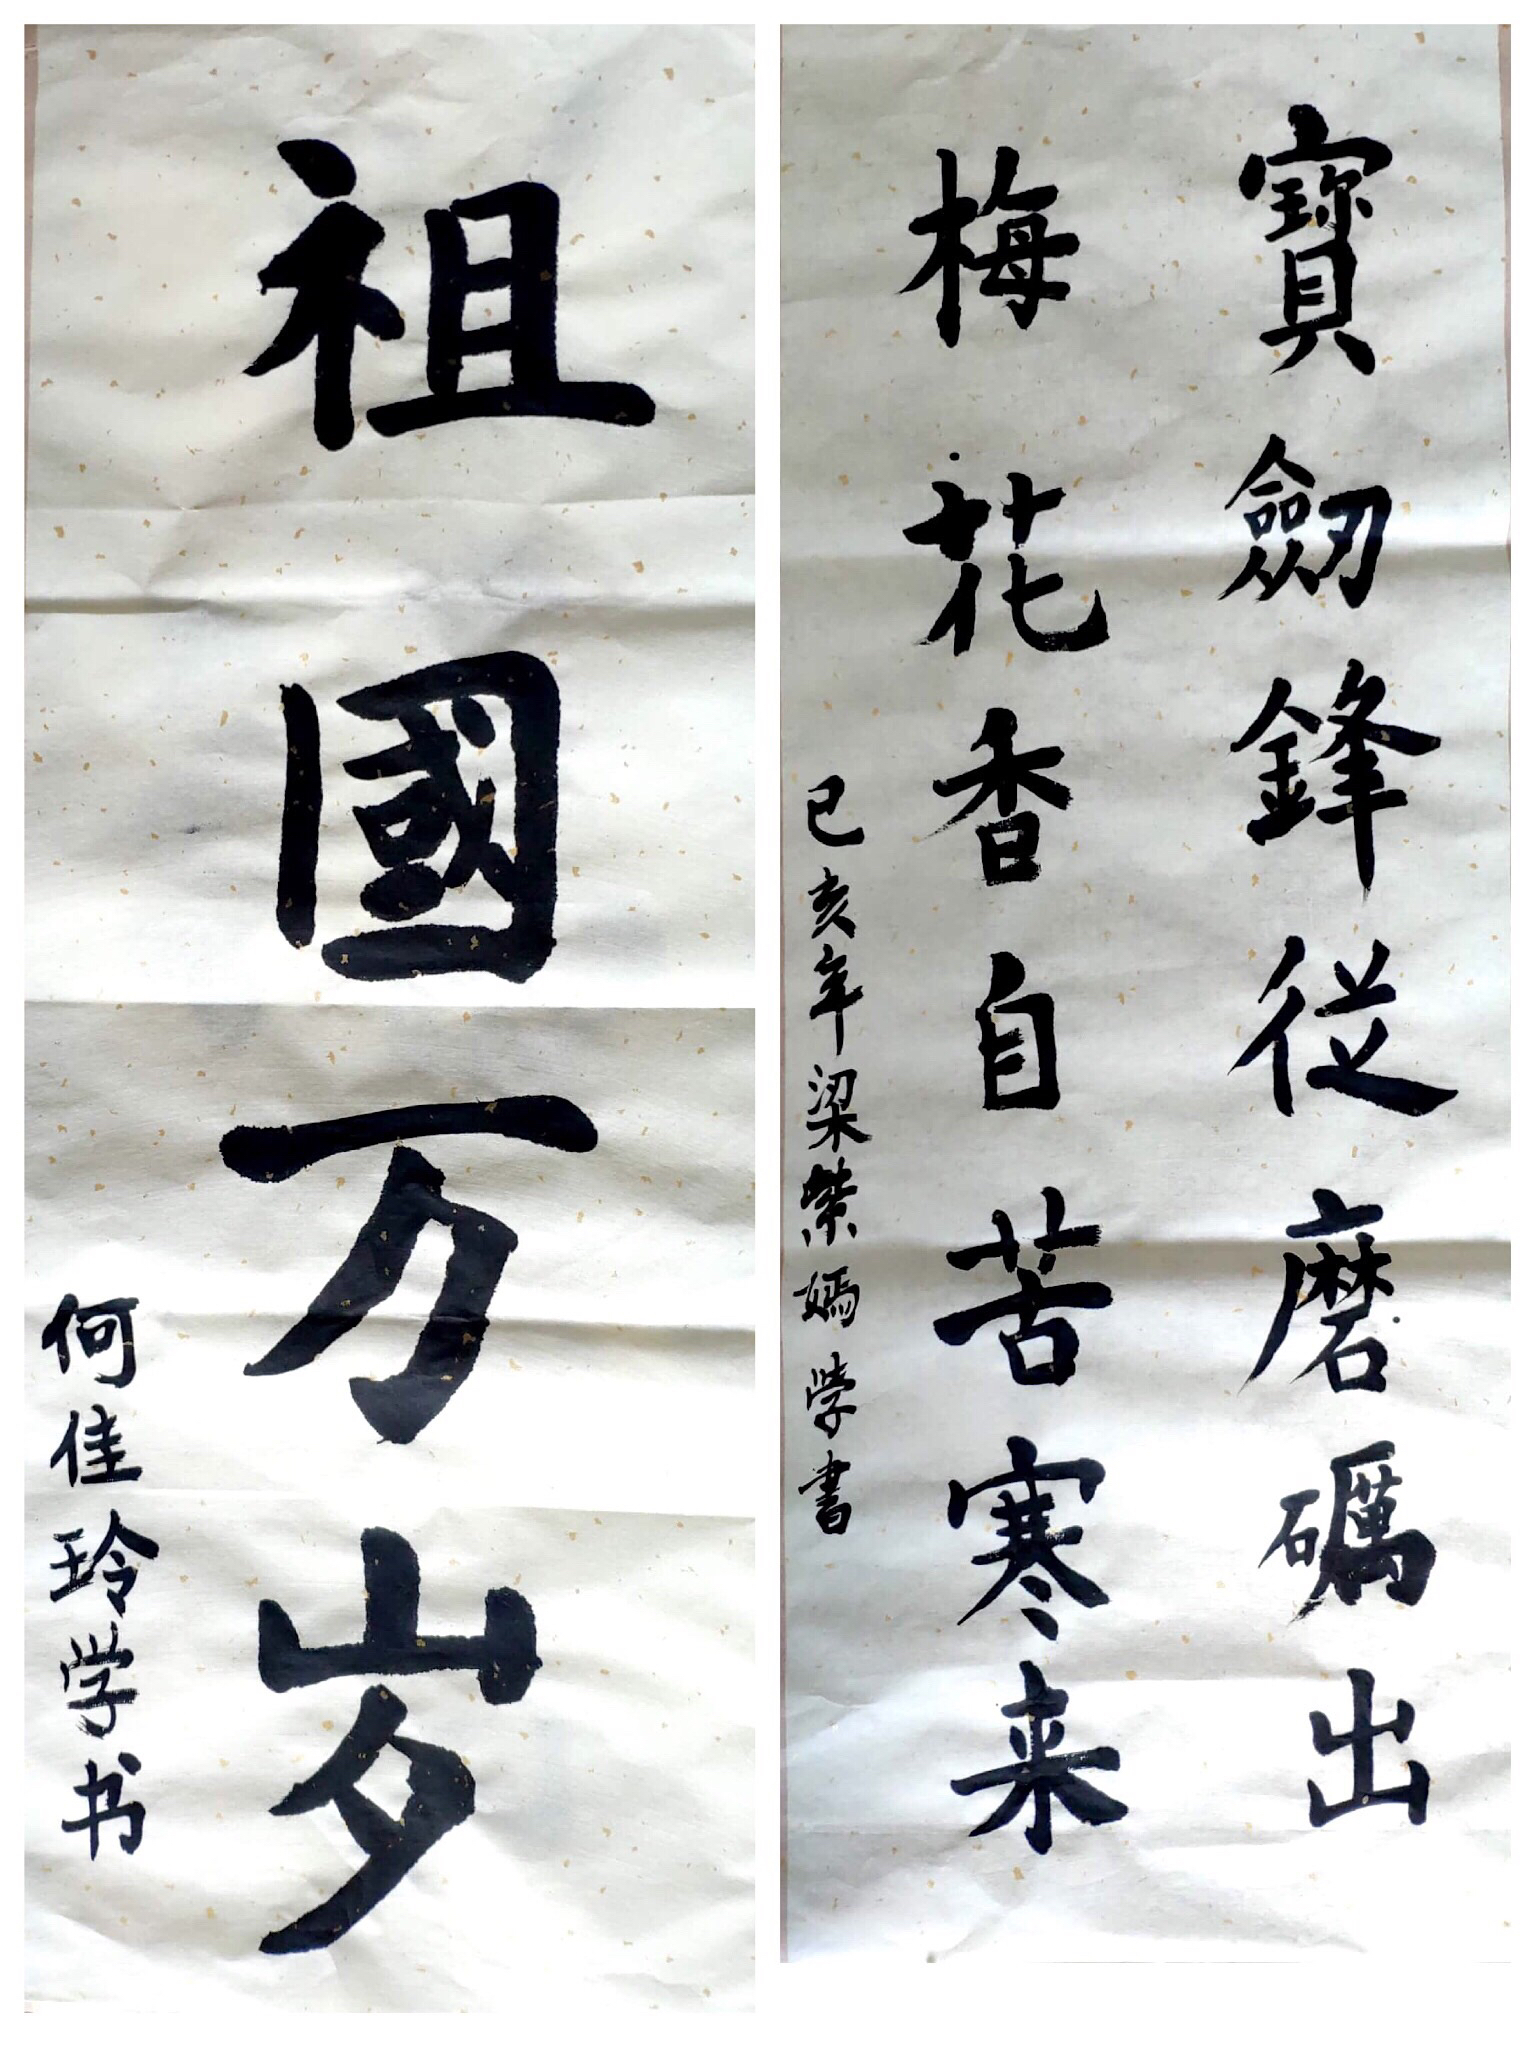 祖國万岁
何佳玲学书
寶劒鋒従磨礪出
梅花香自苦寒来
已亥年梁紫嫣学書